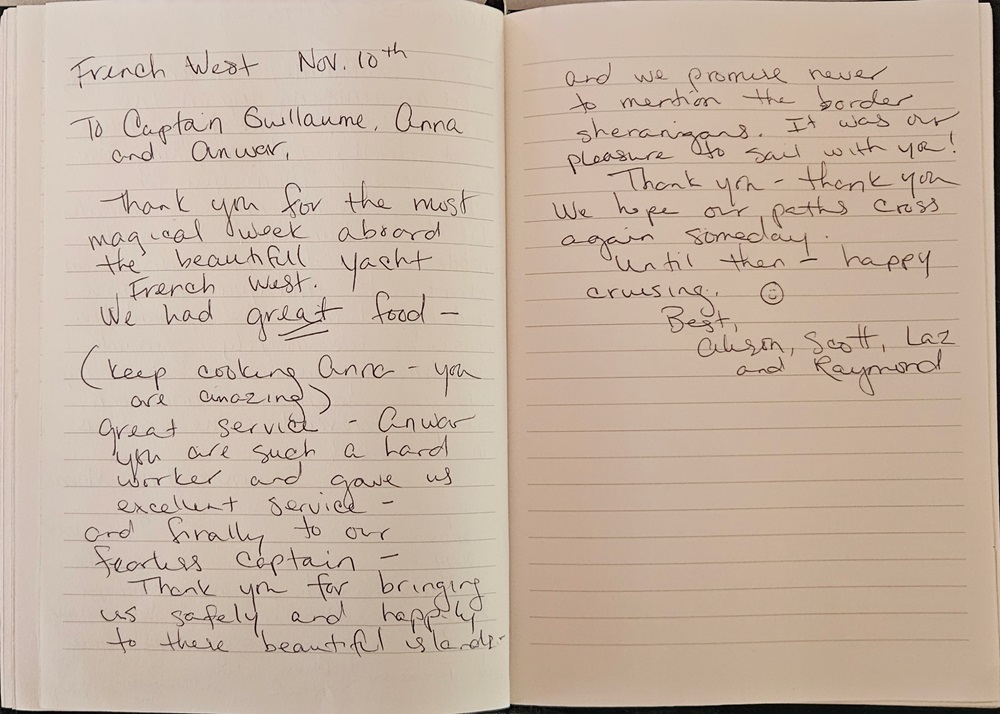 French West Nov. 10th
To Captain Guillaume, Anna
and Anwar,
Thank you for the most
magical week aboard
the beautifull yacht
French West.
We had great food -
(keep cooking Anna - you
are amazing)
great service - Anwar
you are such a hard
worker and gave us
excellent service -
and finally to our
fearless captain -
Thank you for bringing
us safely and happily
to these beautiful islands -
and we promise never
to mention the border
shenanigans. It was our
pleasure to sail with you!
Thank you - thank you
We hope our paths cross
again someday.
Until then - happy
cruising. ☺
Best,
Alison, Scott, Laz
and Raymond